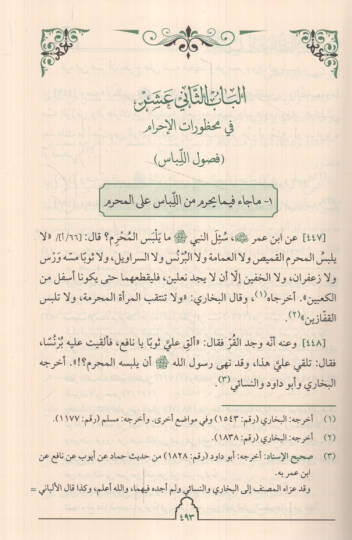 الباب الثاني عشر
في محظورات الإحرام
(فصول اللباس)
١- ماجاء فيما يحرم من اللباس على المحرم
[٤٤٧] عن ابن عمر ﵁، سُئِلَ النبي ﷺ ما يَلْبَس المُحْرِم؟ قال: [٦٦/أ]/ «لا
يلبسُ المحرم القميص ولا العمامة ولا البُرْنُس ولا السراويل، ولا ثوبًا مسّه وَرْس
ولا زعفران، ولا الخفين إلّا أن لا يجد نعلين، فليقطعهما حتى يكونا أسفل من
الكعبين». أخرجاه(١)، وقال البخاري: «ولا تنتقب المرأة المحرمة، ولا تلبس
القفازين»(٢).
[٤٤٨] وعنه أنّه وجد القُرّ فقال: «ألقِ عليّ ثوبًا يا نافع، فألقيت عليه بُرْنُسًا،
فقال: تلقي عليّ هذا، وقد نهى رسول الله ﷺ أن يلبسه المحرم؟!». أخرجه
البخاري وأبو داود والنسائي(٣).
(١) أخرجه: البخاري (رقم: ١٥٤٣) وفي مواضع أخرى. وأخرجه: مسلم (رقم: ١١٧٧).
(٢) أخرجه: البخاري (رقم: ١٨٣٨).
(٣) صحيح الإسناد: أخرجه: أبو داود (رقم: ١٨٢٨) من حديث حماد عن أيوب عن نافع عن
ابن عمر به.
وقد عزاه المصنف إلى البخاري والنسائي ولم أجده فيهما، والله أعلم، وكذا قال الألباني =
٤٩٣